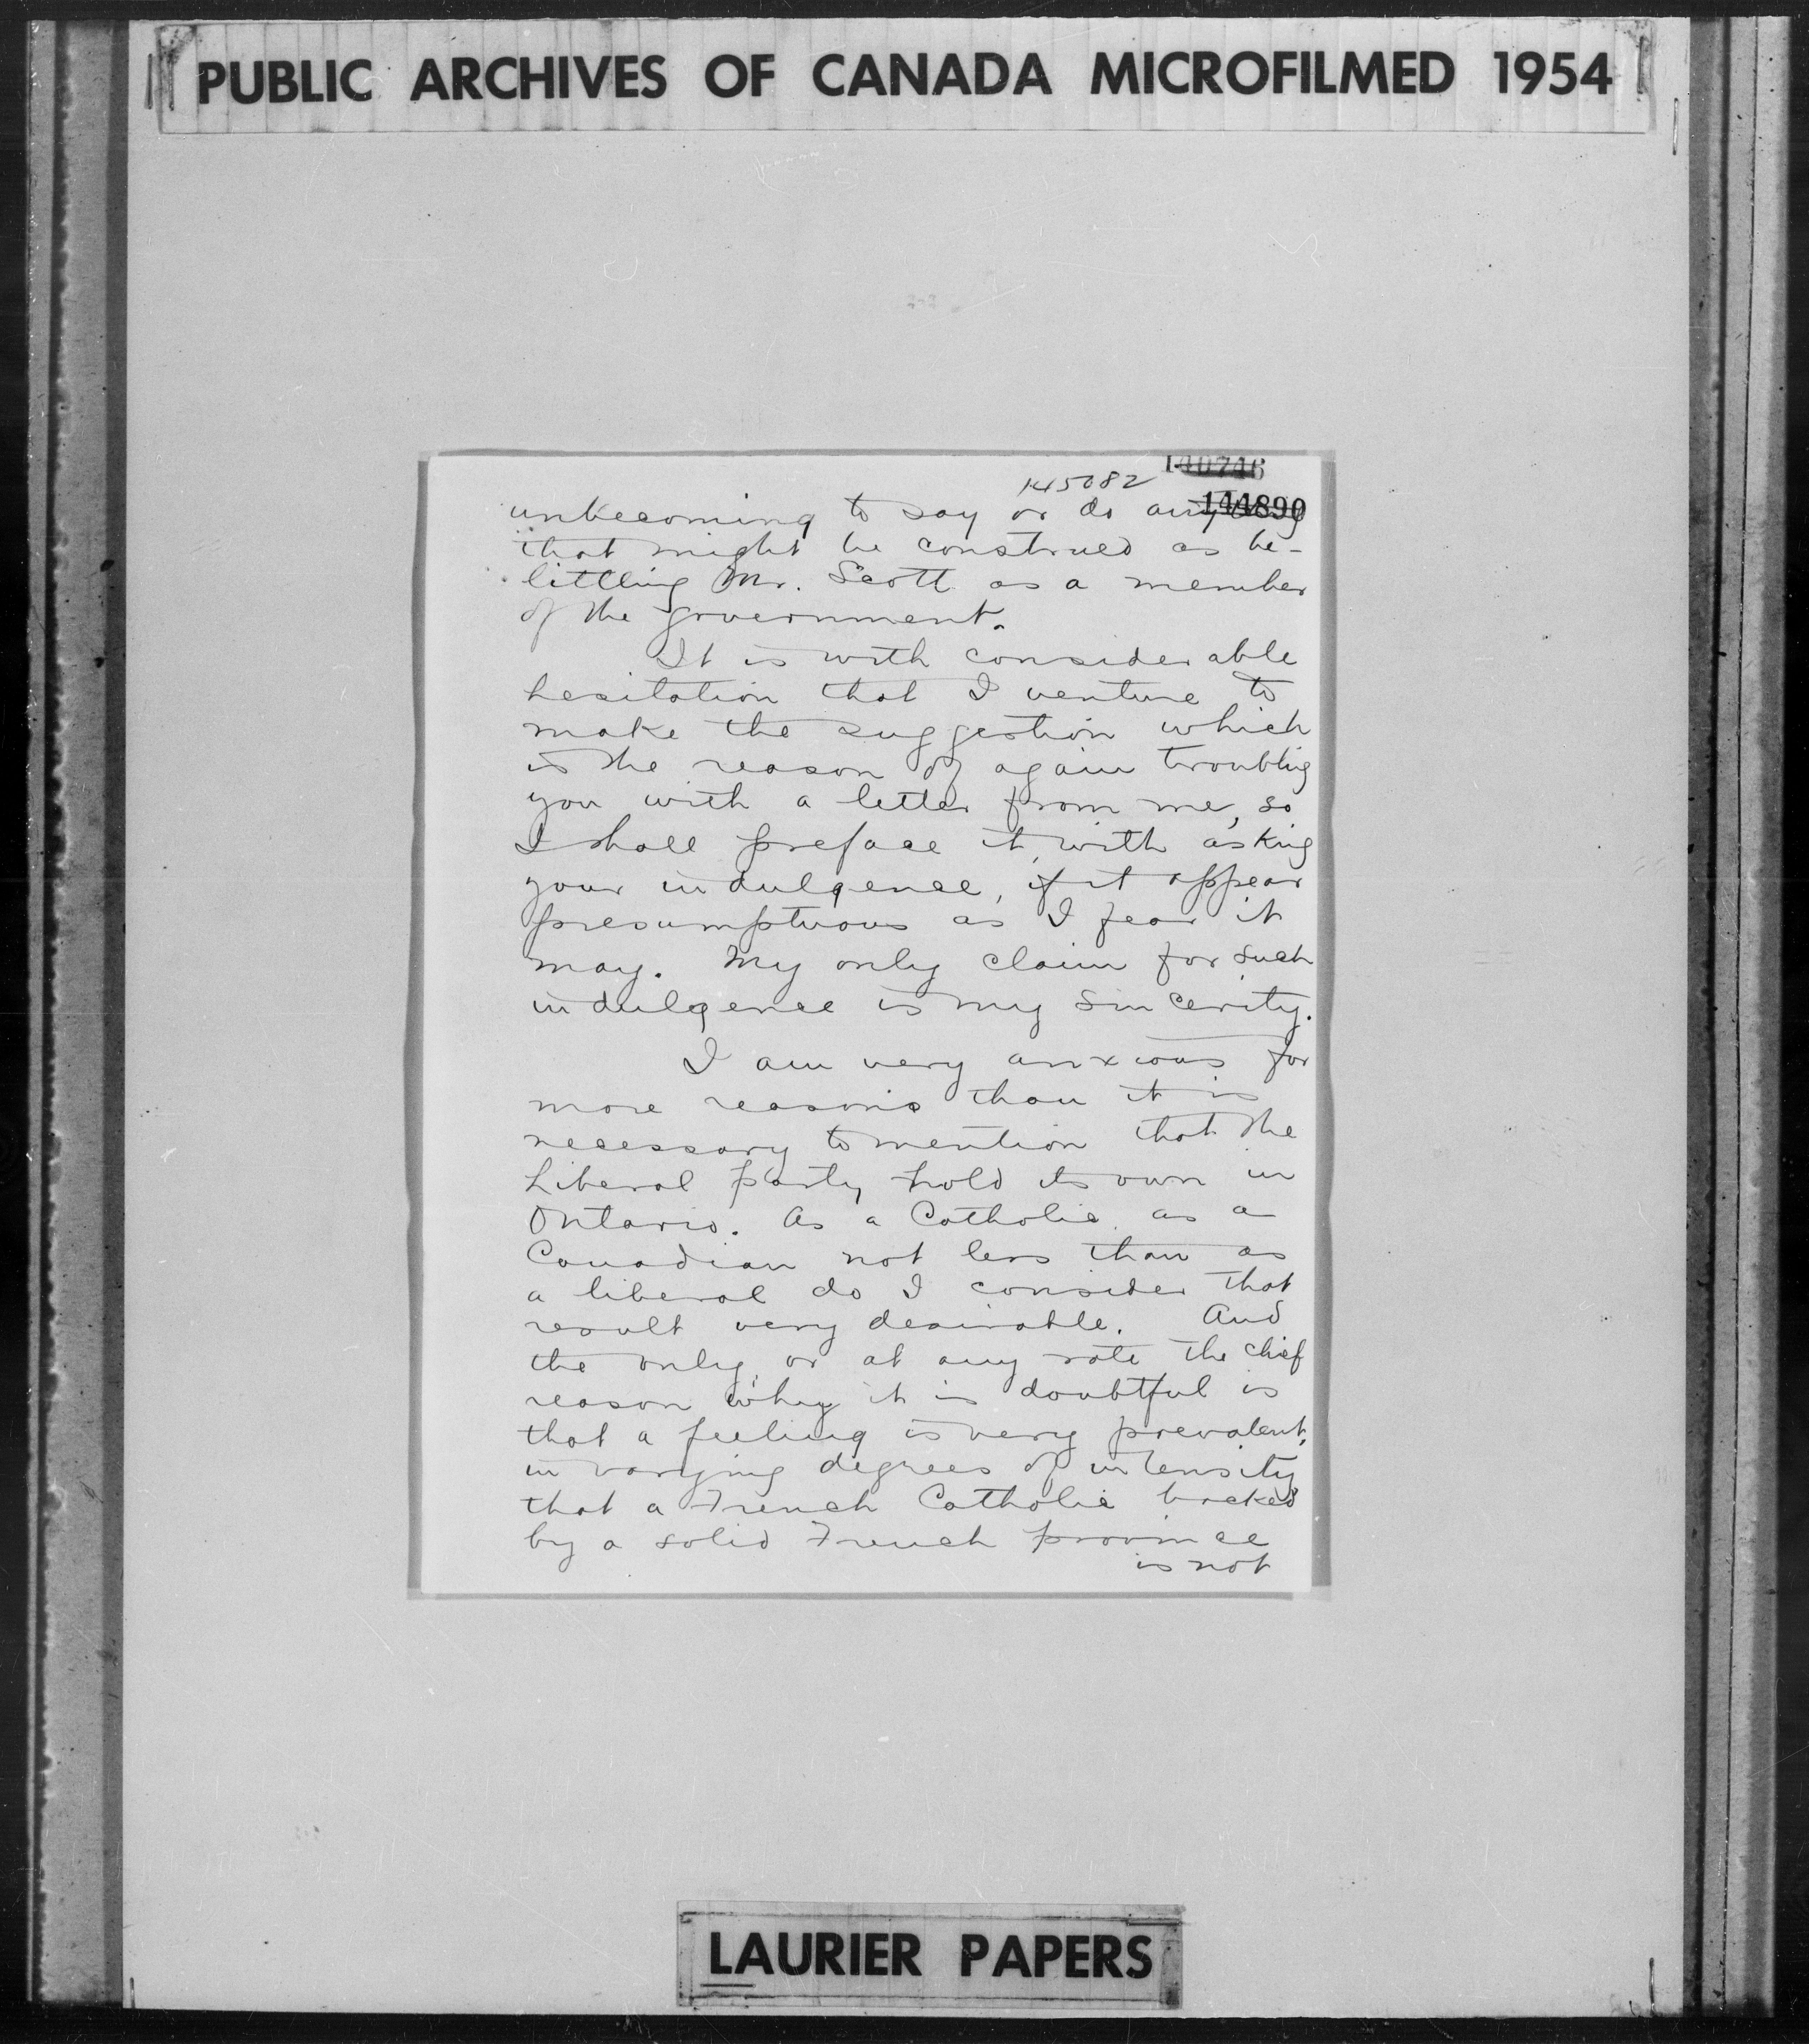 PUBLIC ARCHIVES OF CANADA MICROFILMED 1954
140746
145082
144890
unbecoming to say or do anything
that might be construed as be-
littling Mr. Scott as a member
of the government.
It is with considerable
hesitation that I venture to
make the suggestion which
is the reason of again troubling
you with a letter from me, so
I shall preface it, with asking
your indulgence, if it appear
presumptuous as I fear it
may. My only claim for such
indulgence is my sincerity.
I am very anxious for
more reasons than it is
necessary to mention that the
Liberal party hold its own in
Ontario. As a Catholic, as a
Canadian not less than as
a liberal do I consider that
result very desirable. And
the only, or at any rate the chief
reason why it is doubtful is
that a feeling is very prevalent,
in varying degrees of intensity
that a French Catholic backed
by a solid French province
is not
LAURIER PAPERS